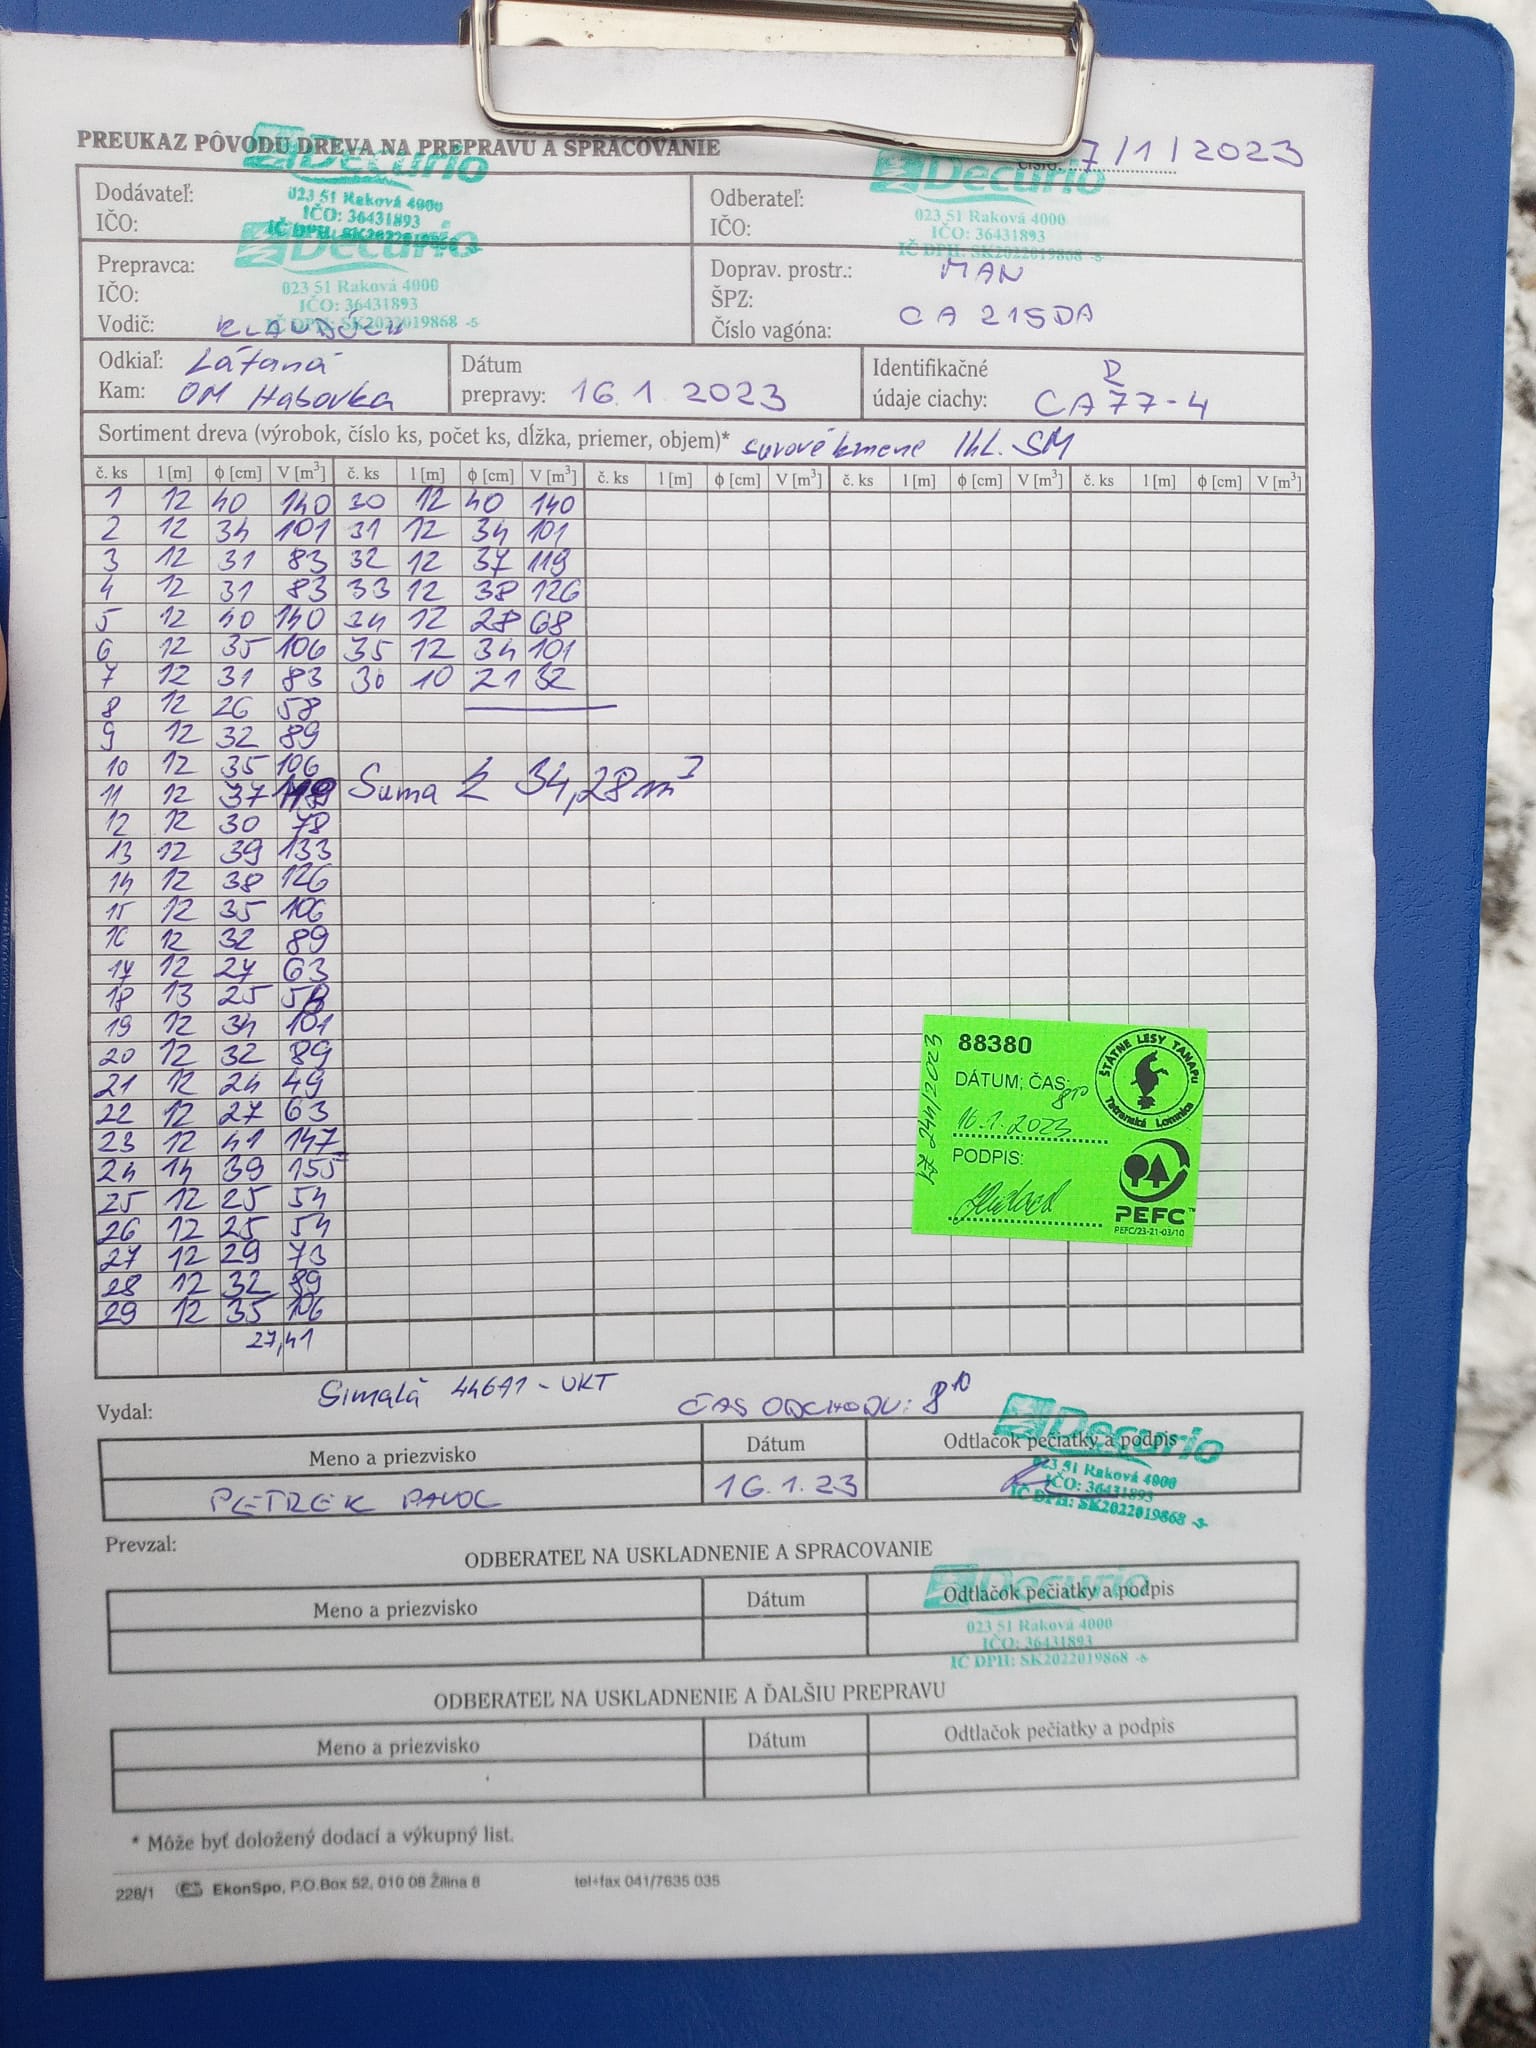 PREUKAZ PÔVODU DREVA NA PREPRAVU A SPRACOVANIE
7/1/2023
Decurio
023 51 Raková 4000
IČO: 36431893
IČ DPH: SK2022019868 -5-
Decurio
023 51 Raková 4000
IČO: 36431893
IČ DPH: SK2022019868 -5-
Dodávateľ:
IČO:
Odberateľ:
IČO:
Decurio
023 51 Raková 4000
IČO: 36431893
IČ DPH: SK2022019868 -5-
Prepravca:
IČO:
Vodič:
Doprav. prostr.: MAN
ŠPZ: CA 215DA
Číslo vagóna:
Odkiaľ: Látaná
Kam: OM Habovka
Dátum
prepravy: 16.1.2023
Identifikačné
údaje ciachy: D CA 77-4
Sortiment dreva (výrobok, číslo ks, počet ks, dĺžka, priemer, objem)* surové kmene Ihl. SM
č. ks l [m] ϕ [cm] V [m³] č. ks l [m] ϕ [cm] V [m³] č. ks l [m] ϕ [cm] V [m³] č. ks l [m] ϕ [cm] V [m³] č. ks l [m] ϕ [cm] V [m³]
1 12 40 140 30 12 40 140
2 12 34 101 31 12 34 101
3 12 31 83 32 12 37 119
4 12 31 83 33 12 38 126
5 12 40 140 34 12 28 68
6 12 35 106 35 12 34 101
7 12 31 83 36 10 21 32
8 12 26 58
9 12 32 89
10 12 35 106
11 12 37 119 Suma Σ 34,28 m³
12 12 30 78
13 12 39 133
14 12 38 126
15 12 35 106
16 12 32 89
17 12 27 63
18 13 25 58
19 12 34 101
20 12 32 89
21 12 24 49
22 12 27 63
23 12 41 147
24 14 39 155
25 12 25 54
26 12 25 54
27 12 29 73
28 12 32 89
29 12 35 106
27,41
88380
DÁTUM; ČAS: 8¹⁰
16.1.2023
PODPIS:
ŠTÁTNE LESY TANAPu
Tatranská Lomnica
PEFC™
PEFC/23-21-03/10
44671 - UKT
ČAS ODCHODU: 8¹⁰
Vydal:
Meno a priezvisko Dátum Odtlačok pečiatky a podpis
PETREK PAVOL 16.1.23
Decurio
023 51 Raková 4000
IČO: 36431893
IČ DPH: SK2022019868 -5-
Prevzal:
ODBERATEĽ NA USKLADNENIE A SPRACOVANIE
Meno a priezvisko Dátum Odtlačok pečiatky a podpis
Decurio
023 51 Raková 4000
IČO: 36431893
IČ DPH: SK2022019868 -5-
ODBERATEĽ NA USKLADNENIE A ĎALŠIU PREPRAVU
Meno a priezvisko Dátum Odtlačok pečiatky a podpis
* Môže byť doložený dodací a výkupný list.
228/1 ES EkonSpo, P.O.Box 52, 010 08 Žilina 8 tel+fax 041/7635 035